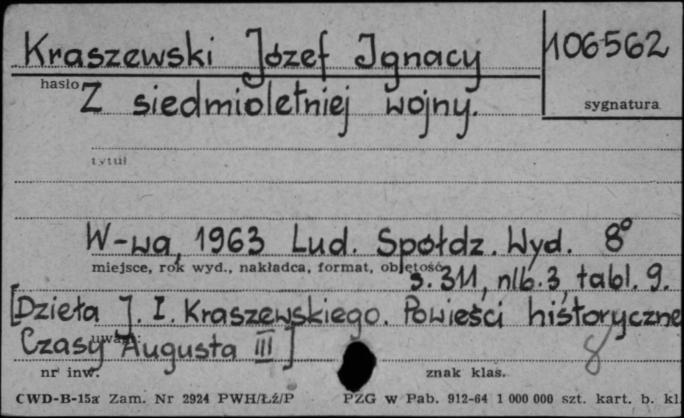 Kraszewski Józef Ignacy 106562
hasło sygnatura
Z siedmioletniej wojny.
tytuł
W-wa, 1963 Lud. Spółdz. Wyd. 8°
miejsce, rok wyd., nakładca, format, objętość
s. 311, nlb. 3, tabl. 9.
[Dzieła J. I. Kraszewskiego. Powieści historyczne
uwagi
Czasy Augusta III] 8
nr inw. znak klas.
CWD-B-15a Zam. Nr 2924 PWH/Łź/P PZG w Pab. 912-64 1 000 000 szt. kart. b. kl.